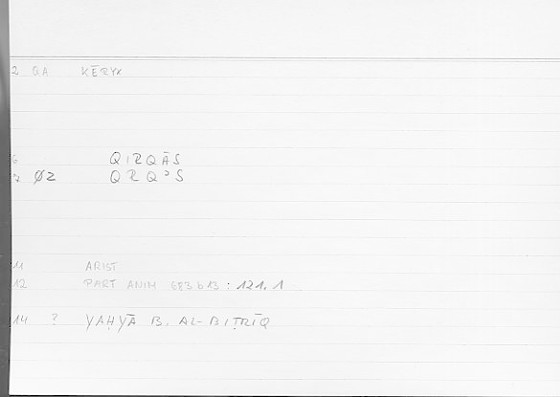 2 QA KĒRYX
6 QIRQĀS
7 Ø2 QRQʾS
11 ARIST
12 PART ANIM 683 b 13 : 121.1
14 ? YAḤYĀ B. AL-BIṬRĪQ